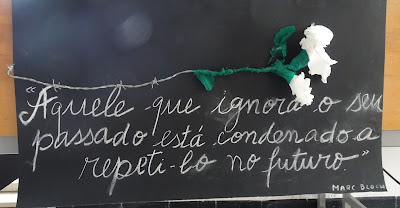 "Aquele que ignora o seu
passado está condenado a
repeti-lo no futuro."
MARC BLOCH